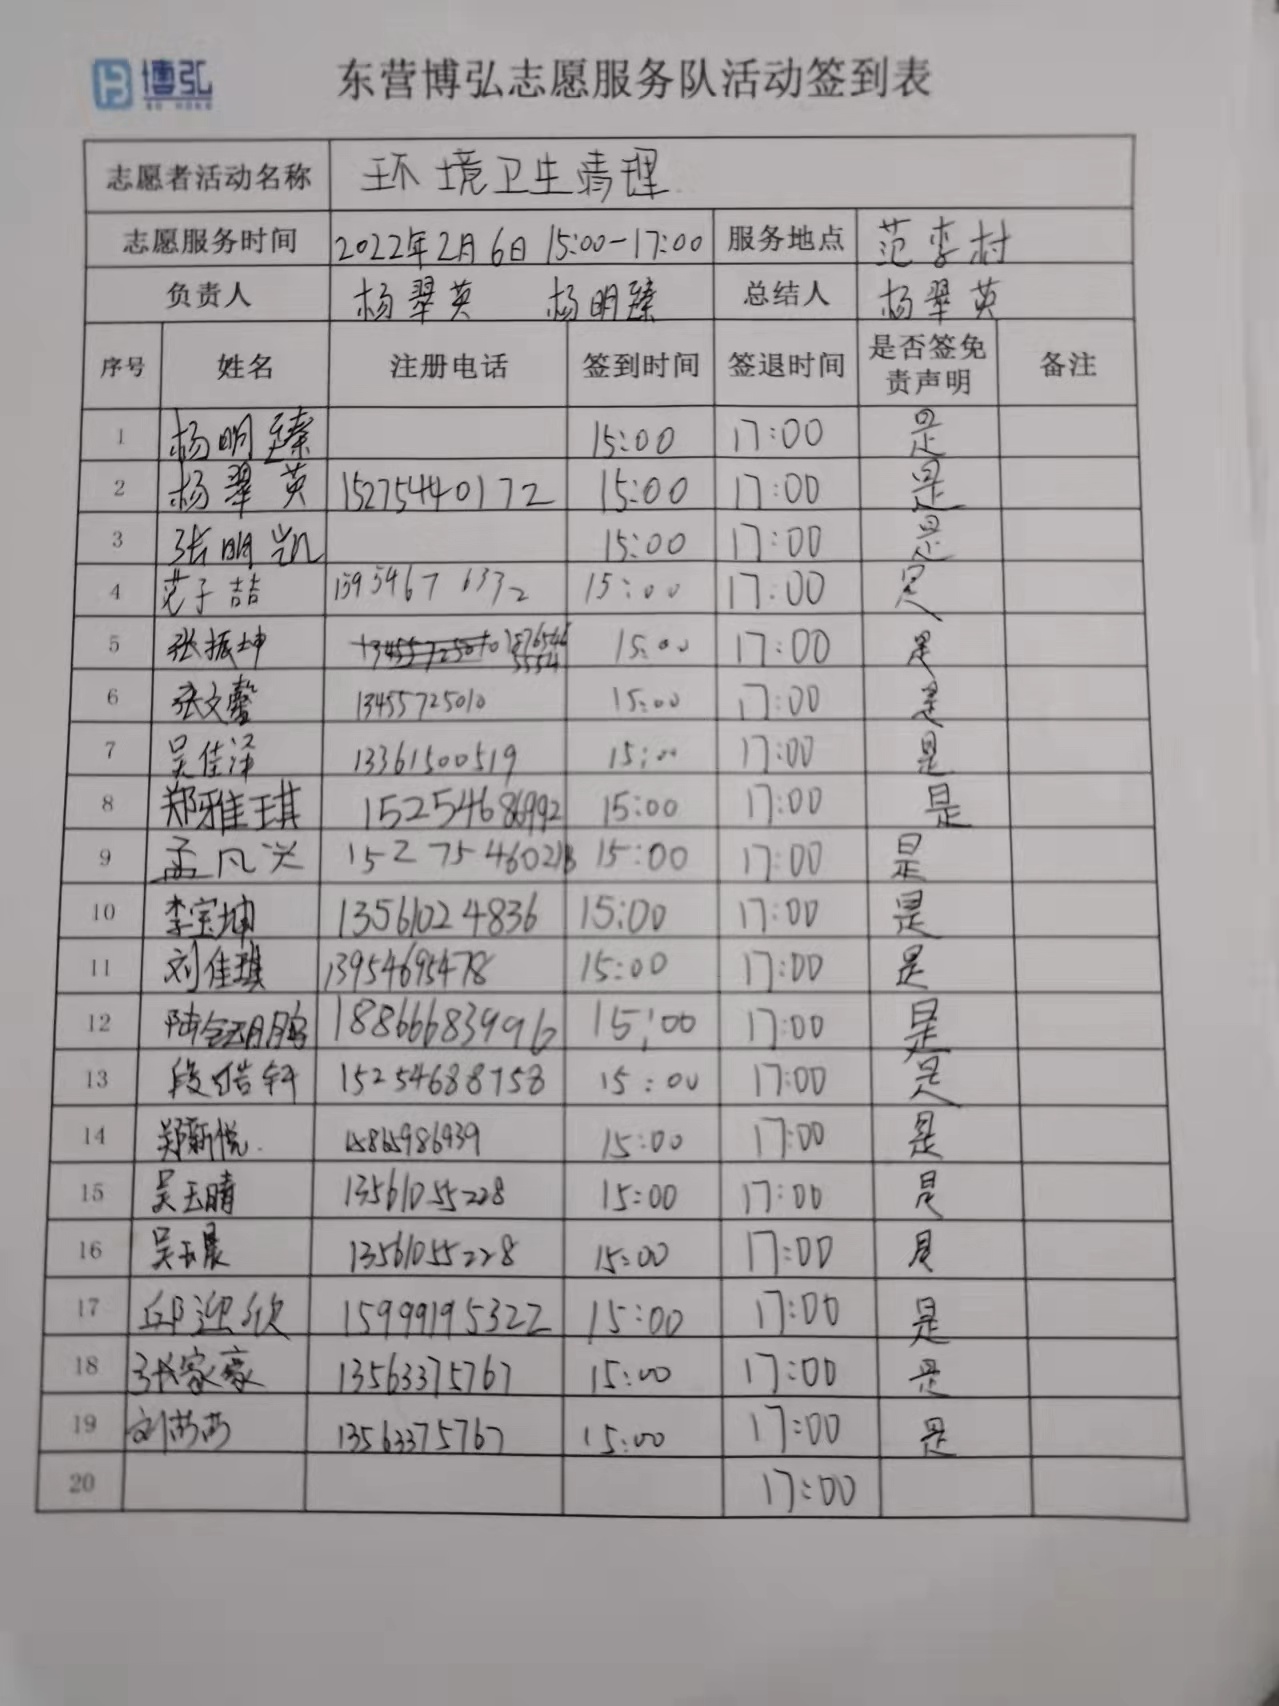 博弘
东营博弘志愿服务队活动签到表
志愿者活动名称 环境卫生清理
志愿服务时间 2022年2月6日 15:00-17:00 服务地点 范李村
负责人 杨翠英 杨明臻 总结人 杨翠英
序号 姓名 注册电话 签到时间 签退时间 是否签免责声明 备注
1 杨明臻 15:00 17:00 是
2 杨翠英 15275440172 15:00 17:00 是
3 张明凯 15:00 17:00 是
4 范子喆 15954676332 15:00 17:00 是
5 张振坤 15:00 17:00 是
6 张文馨 13455725010 15:00 17:00 是
7 吴佳泽 13361500519 15:00 17:00 是
8 郑雅琪 15254686992 15:00 17:00 是
9 孟凡兴 15:00 17:00 是
10 李宝坤 13561024836 15:00 17:00 是
11 刘佳琪 13954695478 15:00 17:00 是
12 18866683996 15:00 17:00 是
13 段皓轩 15254688758 15:00 17:00 是
14 郑新悦 15865986939 15:00 17:00 是
15 吴玉晴 13561055228 15:00 17:00 是
16 吴玉晨 13561055228 15:00 17:00 是
17 邱迎欣 15999195322 15:00 17:00 是
18 张家豪 13563375767 15:00 17:00 是
19 刘茜茜 13563375767 15:00 17:00 是
20 17:00